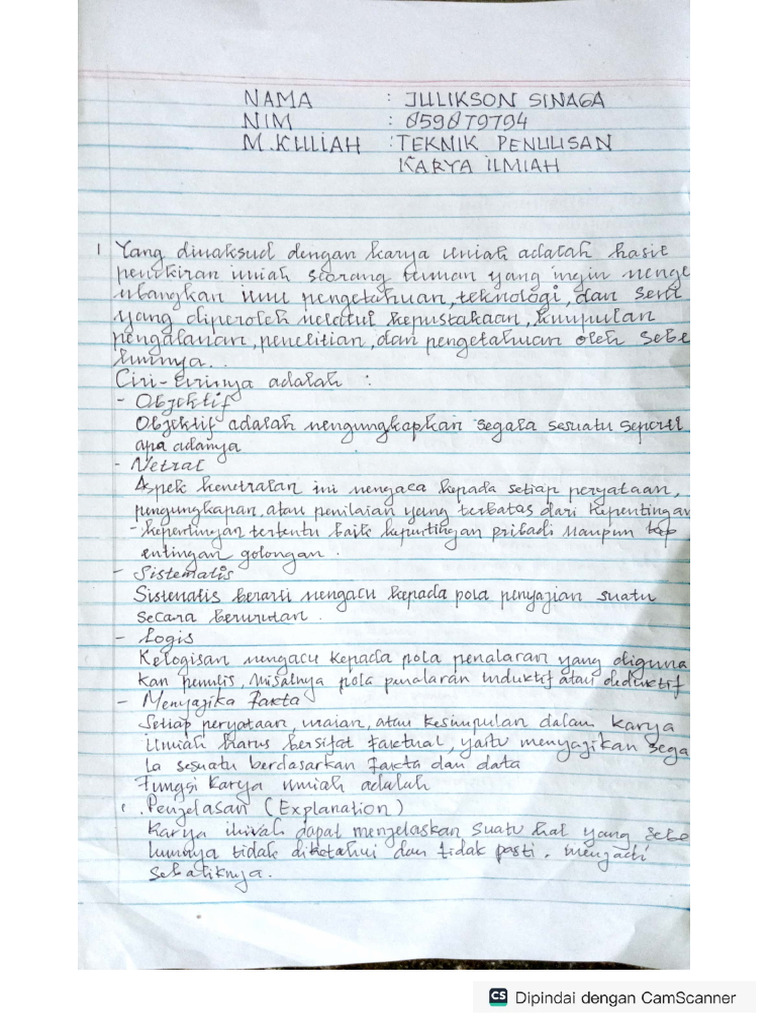 NAMA : JULIKSON SINAGA
NIM : 059079794
M.KULIAH : TEKNIK PENULISAN
KARYA ILMIAH
1 Yang dimaksud dengan karya ilmiah adalah hasil
pemikiran ilmiah seorang ilmuan yang ingin menge
mbangkan ilmu pengetahuan, teknologi, dan seni
yang diperoleh melalui kepustakaan, kumpulan
pengalaman, penelitian, dan pengetahuan oleh sebe
lumnya..
Ciri-Cirinya adalah :
- Objektif
Objektif adalah mengungkapkan segala sesuatu seperti
apa adanya
- Netral
Aspek kenetralan ini mengacu kepada setiap peryataan,
pengungkapan, atau penilaian yang terbatas dari kepentingan
- kepentingan tertentu baik kepentingan pribadi maupun kep
entingan golongan.
- Sistematis
Sistematis berarti mengacu kepada pola penyajian suatu
secara berurutan.
- Logis
Kelogisan mengacu kepada pola penalaran yang diguna
kan penulis, misalnya pola penalaran induktif atau deduktif
- Menyajika fakta
Setiap peryataan, uraian, atau kesimpulan dalam karya
ilmiah harus bersifat faktual, yaitu menyajikan sega
la sesuatu berdasarkan fakta dan data
Fungsi karya ilmiah adalah
. Penjelasan (Explanation)
karya ilmiah dapat menjelaskan suatu hal yang sebe
lumnya tidak diketahui dan tidak pasti, menjadi
sebaliknya.
CS Dipindai dengan CamScanner